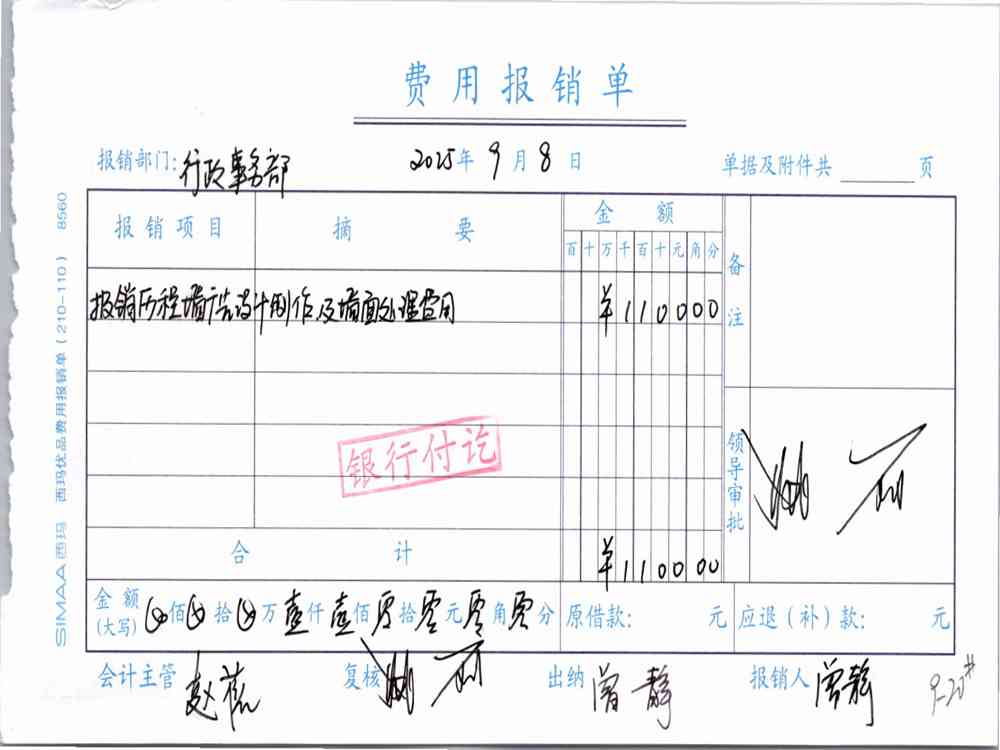 费用报销单
报销部门:行政事务部 2025年9月8日 单据及附件共 页
报销项目 摘要 金额 备注
百十万千百十元角分
报销历程墙广告设计制作及墙面处理费用 ¥110000
银行付讫
领导审批
合计 ¥110000
金额(大写) 佰 拾 万壹仟壹佰零拾零元零角零分 原借款: 元 应退(补)款: 元
会计主管 赵 复核 出纳 曾静 报销人 曾静 9-20#
SIMAA西玛 西玛优品费用报销单(210-110) 8560